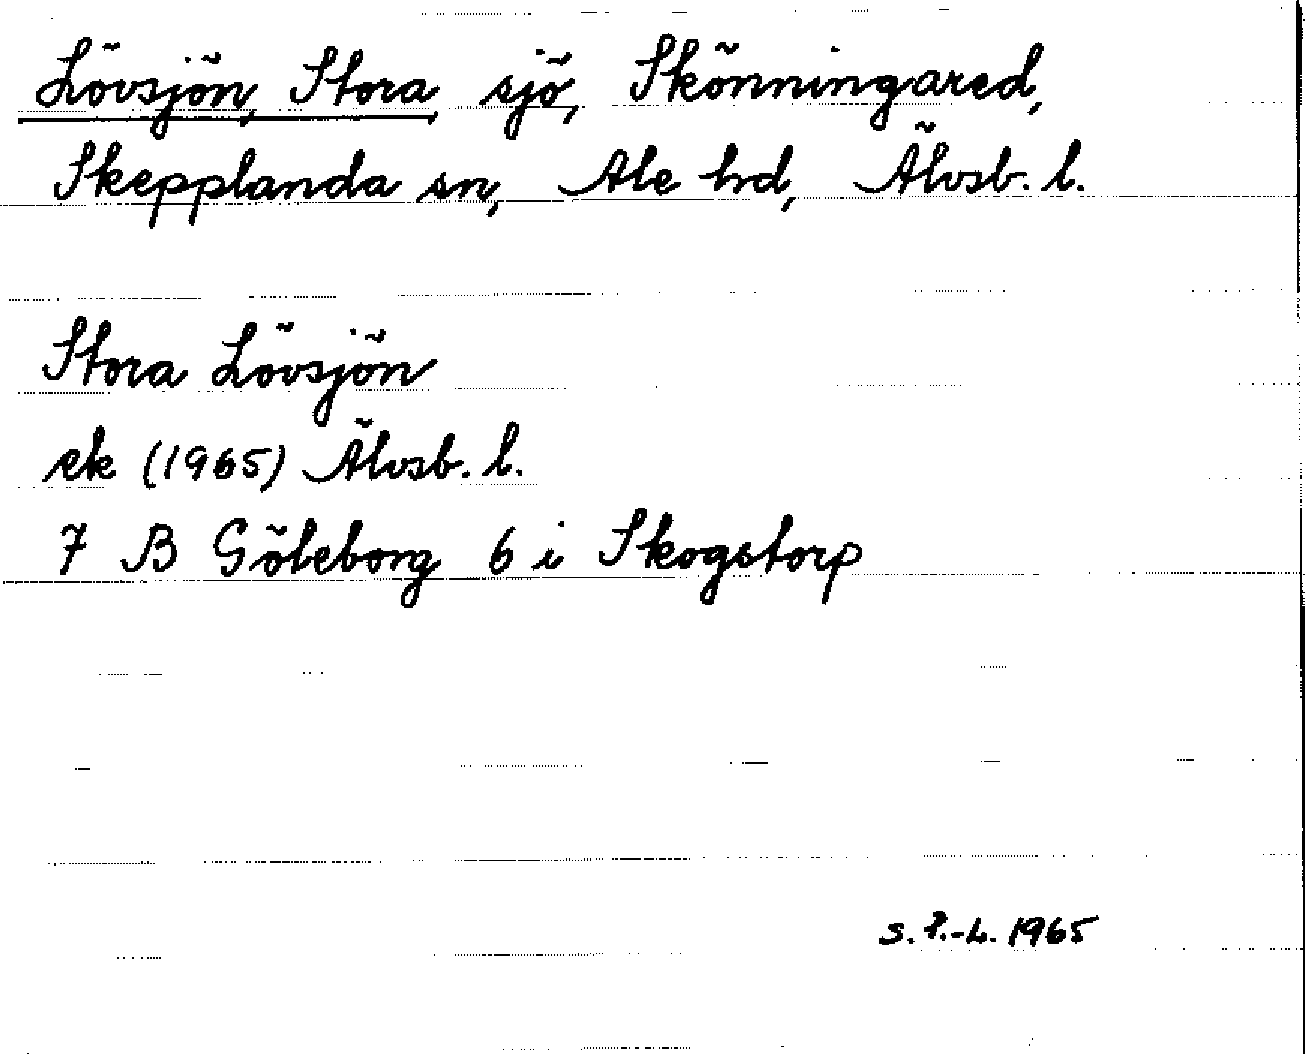 Lövsjön, Stora, sjö, Skönningared,
Skepplanda sn, Ale hd, Älvsb. l.
Stora Lövsjön
ek (1965) Älvsb. l.
7 B Göteborg 6 i Skogstorp
S. P.-L. 1965